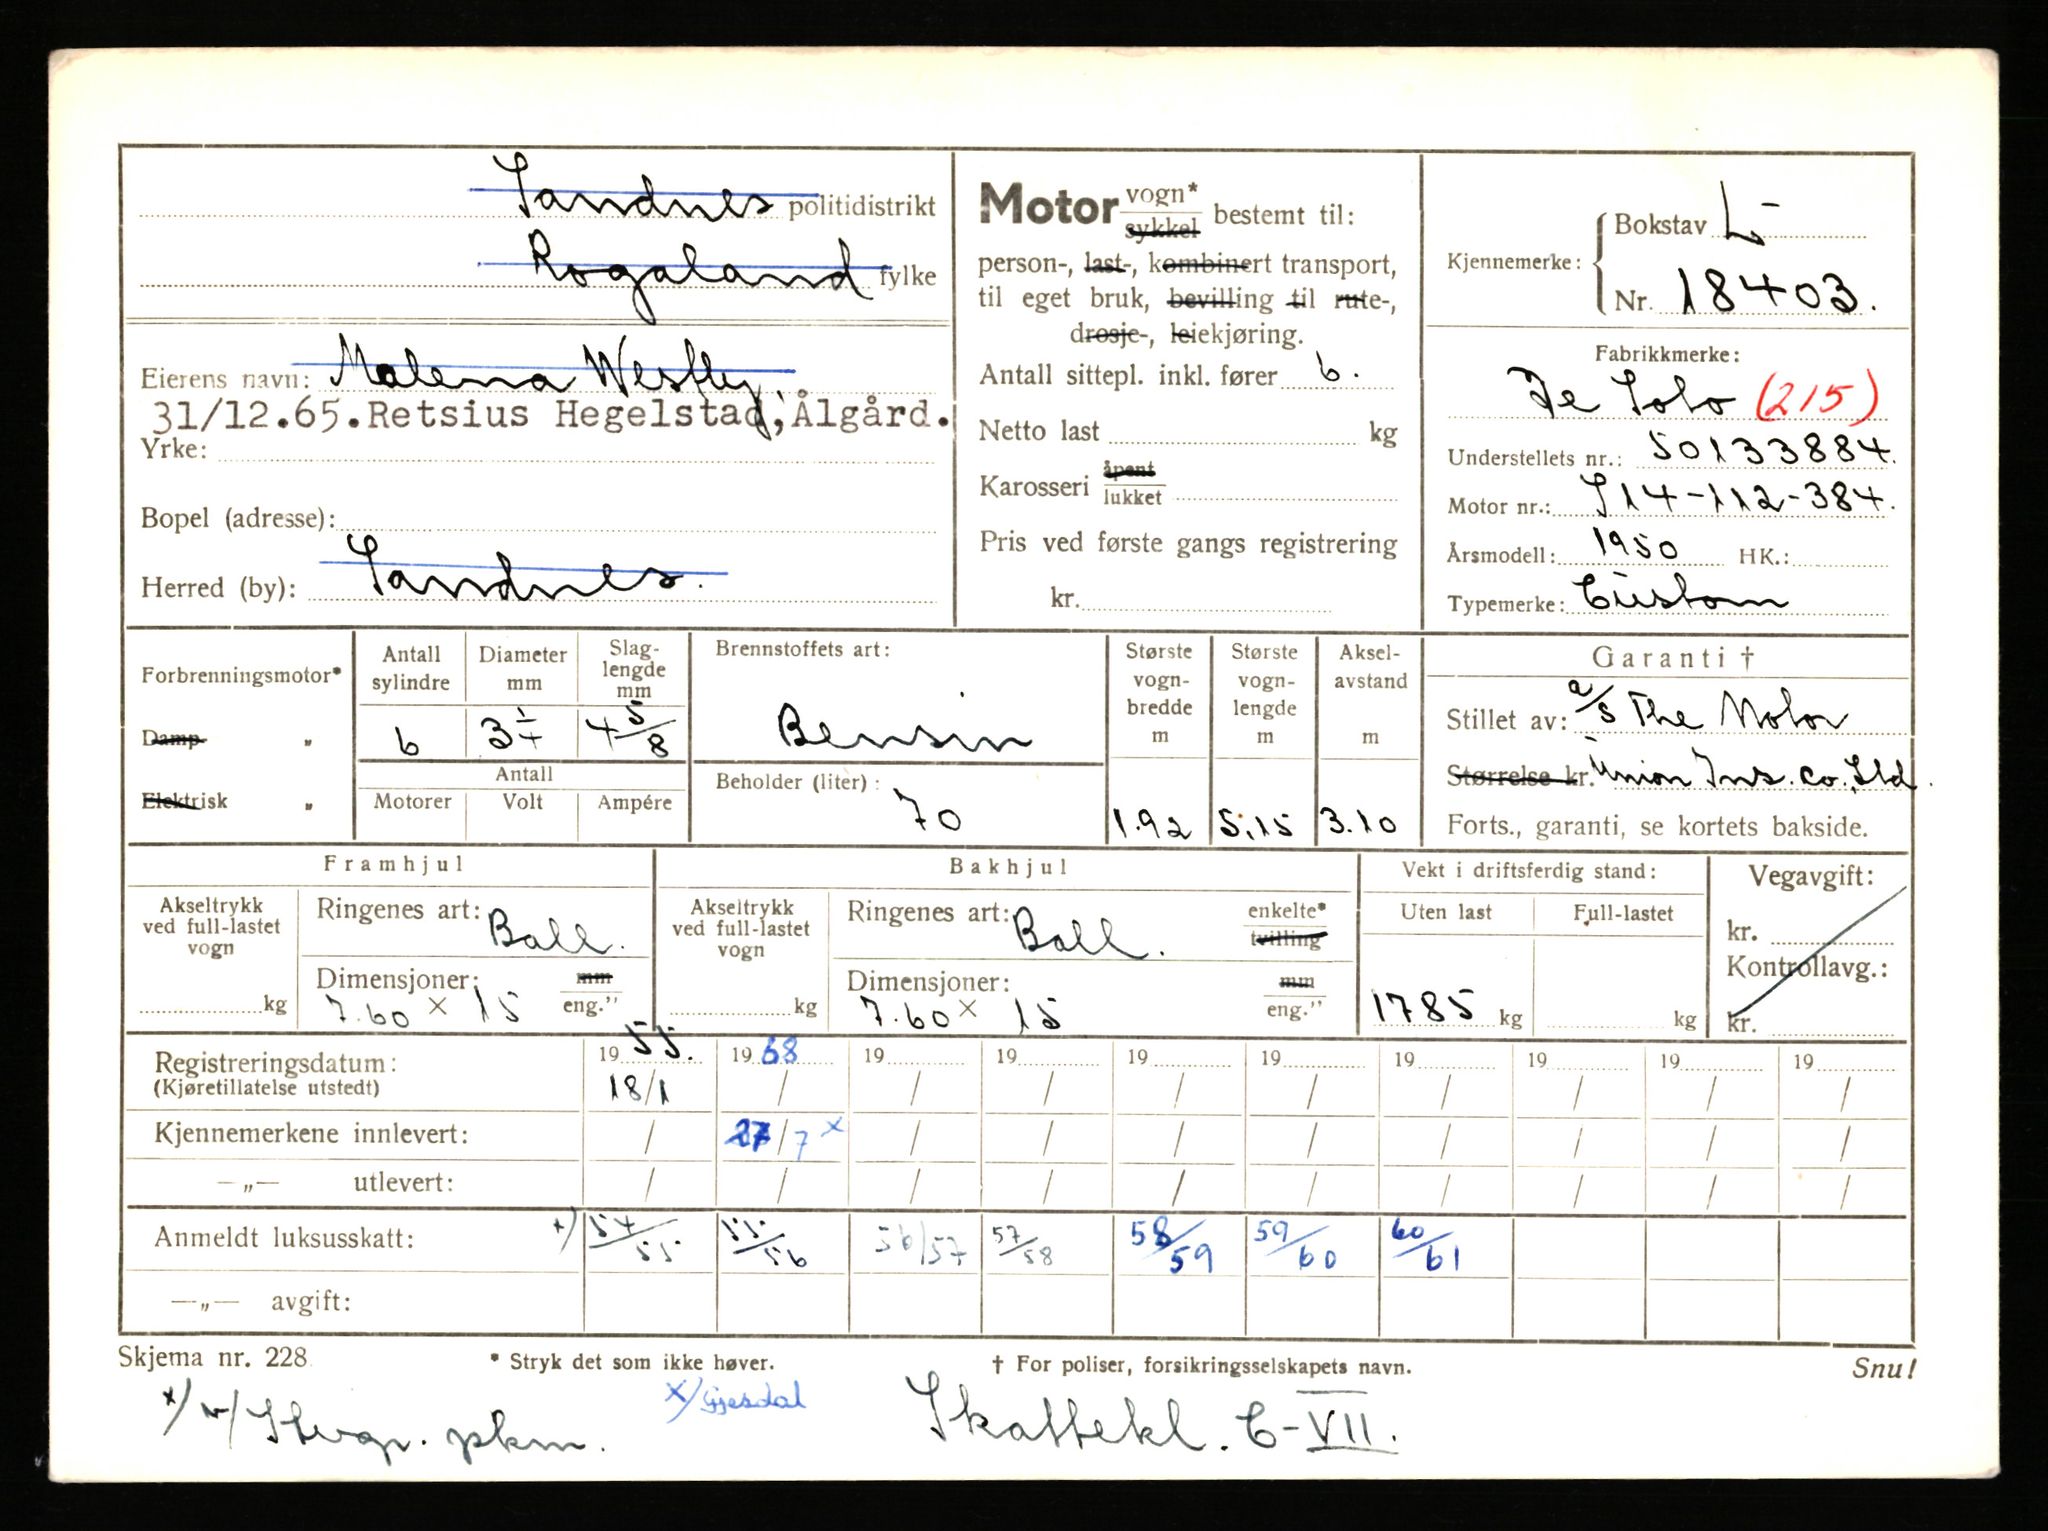 Sandnes politidistrikt
Rogaland fylke
Eierens navn: Malena Westby,
31/12.65.Retsius Hegelstad, Ålgård.
Yrke:
Bopel (adresse):
Herred (by): Sandnes.
Motor vogn* sykkel bestemt til:
person-, last-, kombinert transport,
til eget bruk, bevilling til rute-,
drosje-, leiekjøring.
Antall sittepl. inkl. fører 6.
Netto last kg
Karosseri åpent lukket
Pris ved første gangs registrering
kr.
Kjennemerke: Bokstav L-
Nr. 18403.
Fabrikkmerke:
De Soto (215)
Understellets nr.: 50133884.
Motor nr.: S14-112-384.
Årsmodell: 1950 HK.:
Typemerke: Custom
Forbrenningsmotor*
Damp „
Elektrisk „
Antall sylindre 6
Diameter mm 3 1/4
Slaglengde mm 4 5/8
Antall
Motorer Volt Ampére
Brennstoffets art:
Bensin
Beholder (liter):
70
Største vogn-bredde m 1.92
Største vogn-lengde m 5.15
Aksel-avstand m 3.10
Garanti †
Stillet av: a/s The Motor
Størrelse kr. Union Ins. Co., Ltd.
Forts., garanti, se kortets bakside.
Framhjul
Akseltrykk ved full-lastet vogn
kg
Ringenes art: Ball.
Dimensjoner: mm
7.60 x 15 eng."
Bakhjul
Akseltrykk ved full-lastet vogn
kg
Ringenes art: Ball. enkelte* tvilling
Dimensjoner: mm
7.60 x 15 eng."
Vekt i driftsferdig stand:
Uten last Full-lastet
1785 kg kg
Vegavgift:
kr.
Kontrollavg.:
kr.
Registreringsdatum: 1955. 1968 19 19 19 19 19 19 19 19
(Kjøretillatelse utstedt) 18/1 / / / / / / / / /
Kjennemerkene innlevert: / 27/7 x / / / / / / / /
—„— utlevert: / / / / / / / / / /
Anmeldt luksusskatt: x) 54/55 55/56 56/57 57/58 58/59 59/60 60/61
—„— avgift:
Skjema nr. 228 * Stryk det som ikke høver. † For poliser, forsikringsselskapets navn. Snu!
x/ Gjesdal
Skattekl. C-VII.
pkm.